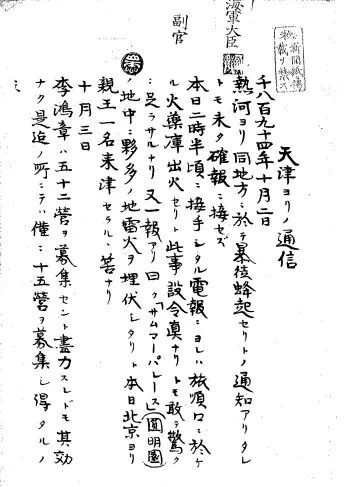 新聞紙掲
載ヲ禁ス
海軍大臣
副官
天津ヨリノ通信
千八百九十四年十月二日
熱河ヨリ同地方ニ於テ暴徒蜂起セリトノ通知アリタレ
トモ未タ確報ニ接セズ
本日二時半頃ニ接手シタル電報ニヨレハ旅順口ニ於ケ
ル火薬庫出火セリト此事設令真ナリトモ敢テ驚ク
ニ足ラサルナリ又一報アリ曰ク「サムマーパレース」(圓明園)
ノ地中ニ夥多ノ地雷火ヲ埋伏シタリト本日北京ヨリ
親王一名来津セラルヽ筈ナリ
十月三日
李鴻章ハ五十二営ヲ募集セント盡力スレドモ其効
ナク是迄ノ所ニテハ僅ニ十五営ヲ募集シ得タルノ
ミ